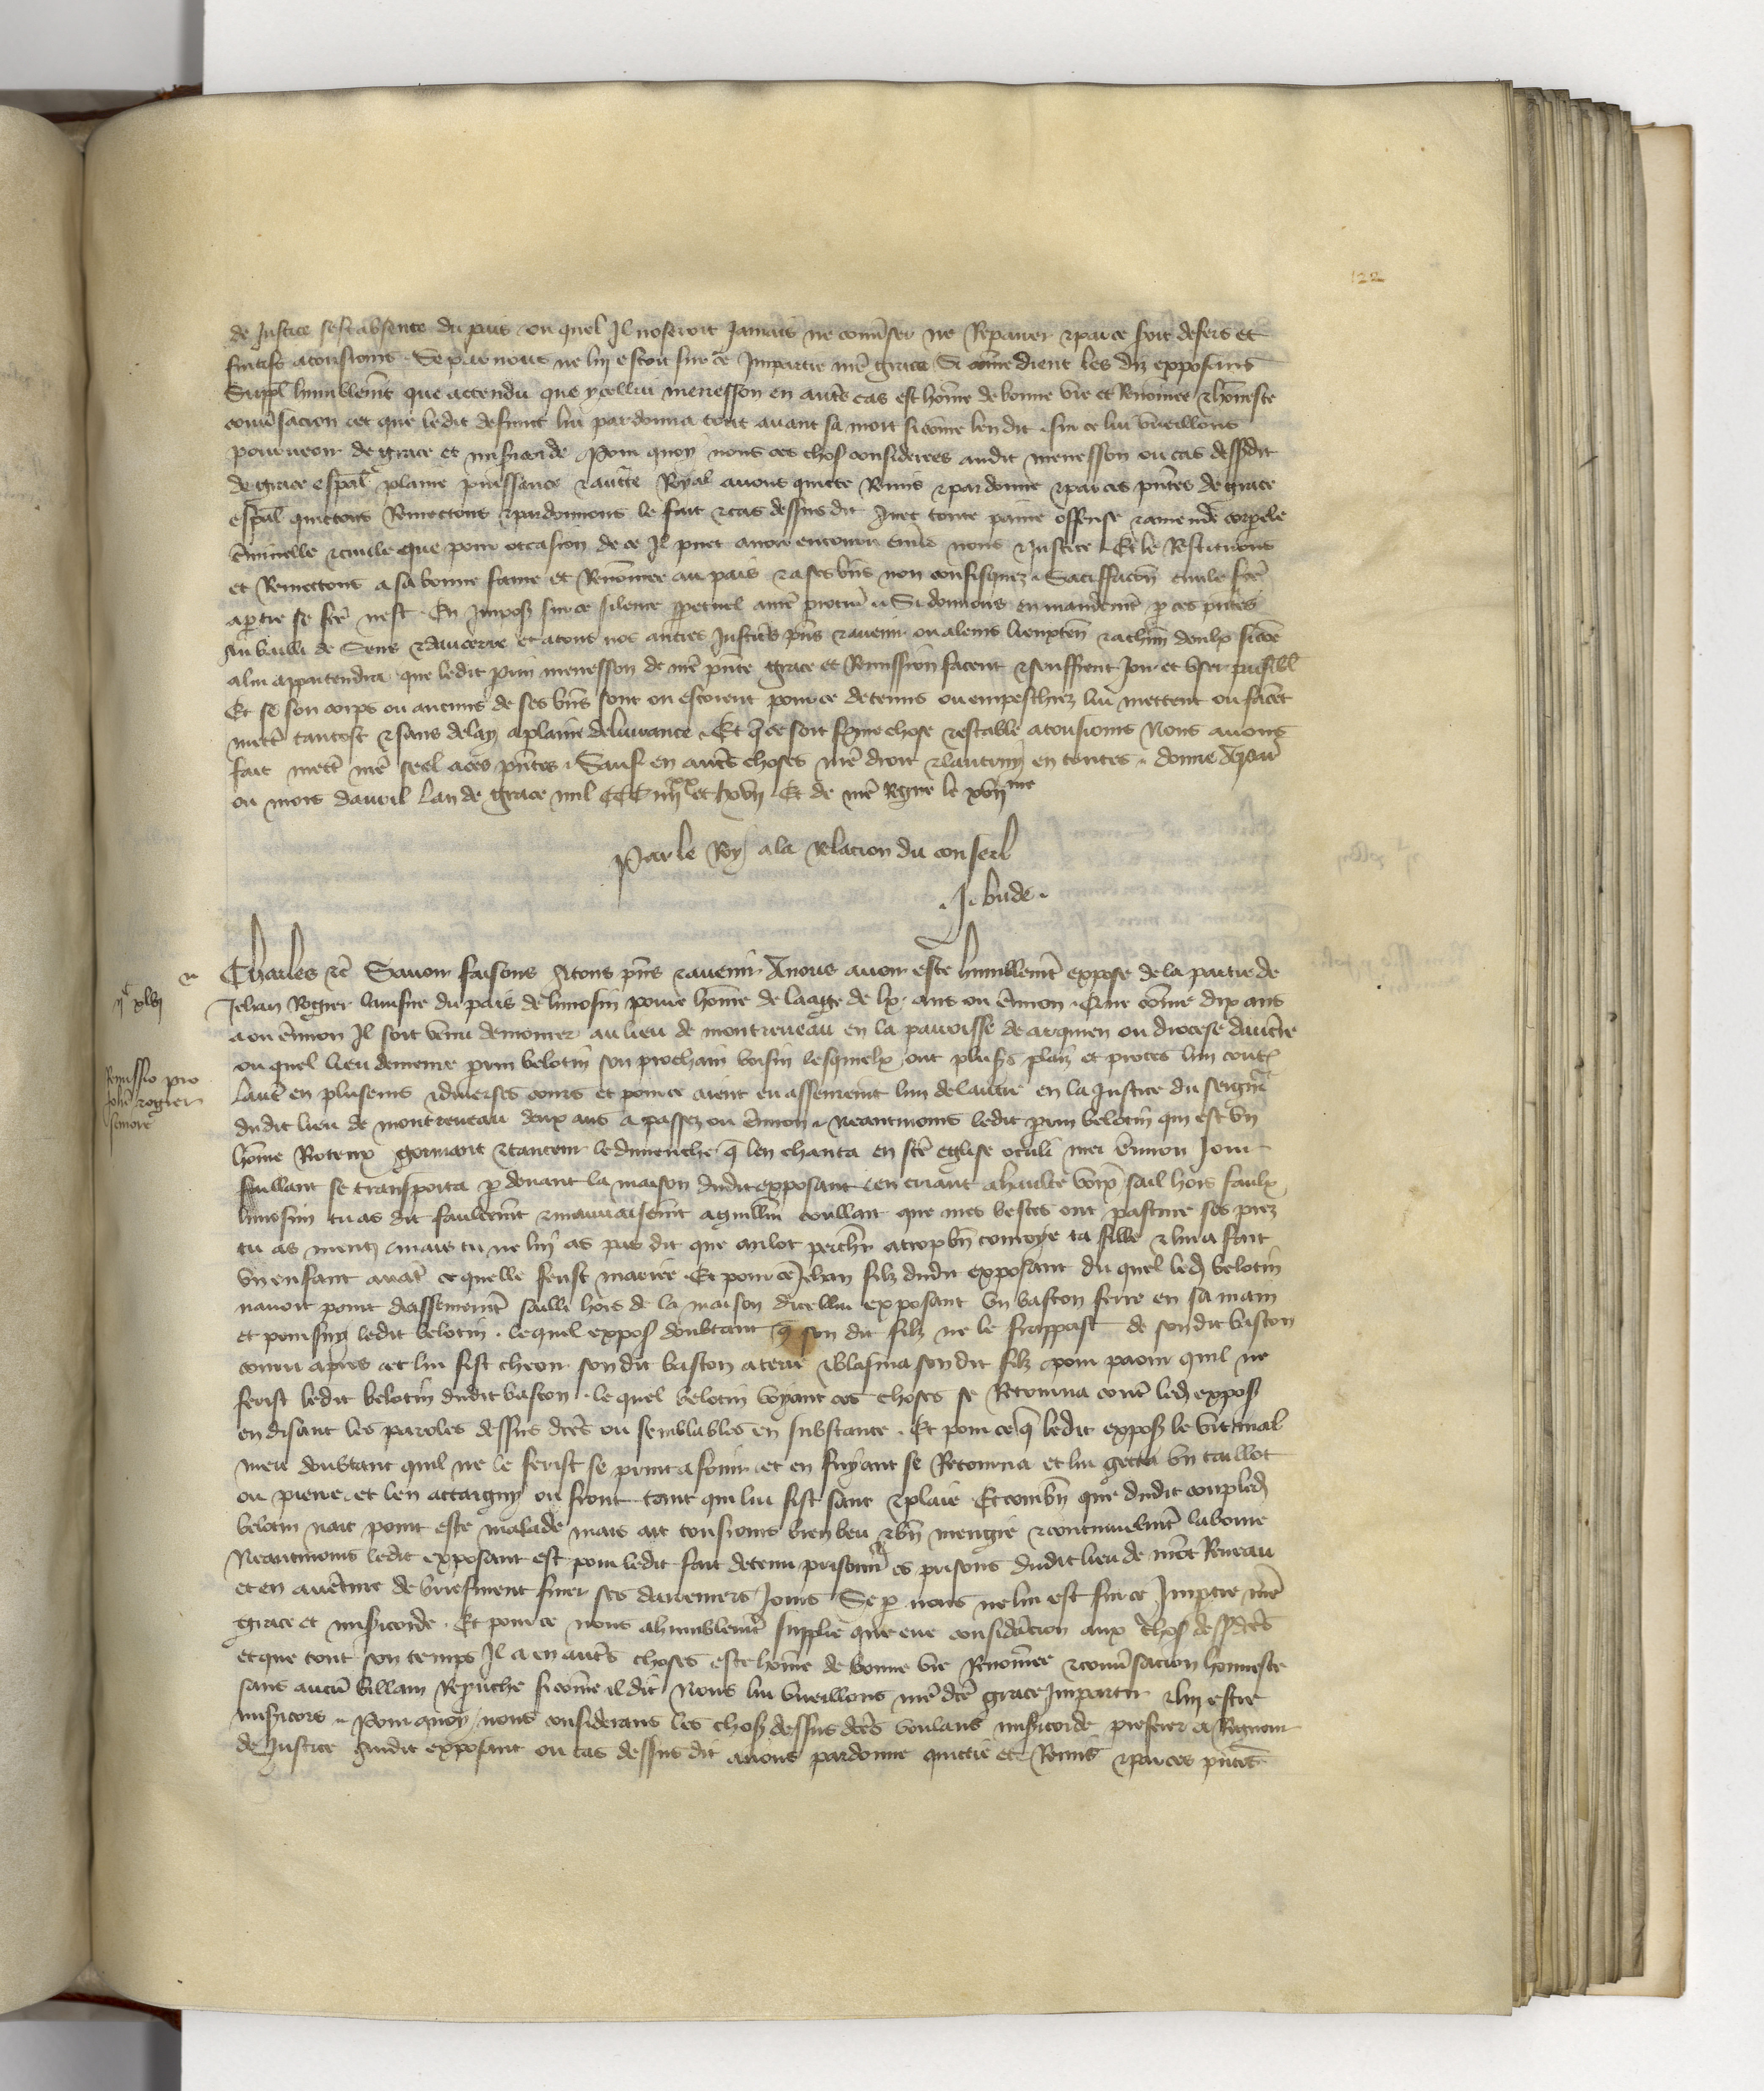 122
de justice sest absente du pais ou quel il noseroit jamais ne conv̄ser ne Repairer et par ce soit desers et
fuitifs a tousiours . Se par nous ne lui estoit sur ce impartie nr̄e grace Si cōme dient les diz exposans
Suppl̄ humblemt que attendu que ycellui menesson en autres cas est hōme de bonne vie et Renōmee et hōneste
conūsacion et que ledit defunct lui pardonna tout avant sa mort si cōme len dit . sur ce lui vueillons
pourveoir de grace et miscorde Pour quoy nous ces chos considerees audit menesson ou cas dessdit
de grace esp̄al plaine puissance et auctē Royal avons quitte Remis et pardonne et par ces pn̄tes de grace
esp̄al quittons Remettons et pardonnons le fait et cas dessus dit avec toute paine offense et amende corpele
c̄minelle et civile que pour occasion de ce il puet avoir encouru envers nous et justice . Et le Restituons
et Remettons a sa bonne fame et Renōmee au pais et a ses bn̄s non confisquez . Satiffaccōn civile fcē
a partie se fcē nest . En impos sur ce silence ppetuel a nr̄e procur̄ . Si donnons en mandemt p ces pn̄tes
Au bailli de Sens et daucerre et a tous nos autres justic̄s pn̄s et avenir ou a leurs lieuxten̄ et a chūn deulx sicōe
a lui appartendra que ledit prin menesson de nr̄e pn̄te grace et Remission facent et seuffrent joir et user paisibl̄
Et se son corps ou aucuns de ses bn̄s sont ou estoient pour ce detenus ou empeschez lui mettent ou facēt
mettr̄ tantost et sans delay a plaine delivrance . Et q̄ ce soit ferme chose et estable a tousiours Nous avons
fait mettr̄ nr̄e seel a ces pn̄tes . Sauf en autr̄s choses nr̄e droit et lautruy en toutes . donne A paris
ou mois davril Lan de grace mil CCC iiijxx et xvij Et de nr̄e Regne le xvijme
Par le Roy a la relacion du conseil
. J. bude .
Charles etc̄ Savoir faisons A tous pn̄s et avenir A nous avoir este humblemt expose de la partie de
iic xlvj
Jehan Rogier lausne du pais de limosin povre hōme de laage de lx . ans ou environ . Que cōme dix ans
a ou environ il soit venu demourer au lieu de montreueau en la parroisse de arquien ou diocese daucerre
ou quel lieu demeure prin belotin son prochain voisin lesquelx ont plusrs plaiz et proces lun contre
Remissio pro
johe rogier
lautr̄ en plusieurs et diverses cours et pour ce aient eu assseuremt lun de lautre en la justice du seigneur
dudit lieu de montreueau deux ans a passez ou environ . Neantmoins ledit prin belotin qui est un
hōme Roteux gormant et tanceur le dimenche q̄ len chanta en scē eglise oculi mei environ jour
faillant se transporta p devant la maison dudit exposant et en criant a haulte voix sail hors faulx
limosin tu as dit faulcemt et mauvaisemt a guillm coullart que mes bestes ont pasture ses prez
tu as menty mais tu ne luy as pas dit que anlot a trop bn̄ conroye ta fille et lui a fait
un enfant avāt ce quelle feust mariee . Et pour ce Jehan filz dudit exposant du quel led belotin
navoit point dassseuremt sailli hors de la maison dicellui exposant un baston ferre en sa main
et poursuy ledit belotin . lequel expos doubtant q̄ son dit filz ne le frappast de sondit baston
couru apres et lui fist cheoir son dit baston a terre et blasma son dit filz pour paour quil ne
ferist ledit belotin dudit baston . le quel belotin voyant ces choses se Retourna contr̄ led expos
en disant les paroles dessus dc̄tes ou semblables en substance . Et pour ce q̄ ledit expos le vit mal
meu doubtant quil ne le ferist se print a fouir et en fuyant se Retourna et lui getta un caillot
ou pierre et len attaigny ou front tant qui lui fist sanc et plaie Et combn̄ que dudit coup led
belotin nait point este malade mais ait tousiours bien beu et bn̄ mengie et continuelmt laboure
Neantmoins ledit exposant est pour ledit fait detenu prisonnier es prisons dudit lieu de mōt Reueau
et en aventure de briefment finer ses darreniers jours Se p nous ne lui est sur ce impartie nr̄e
grace et miscorde . Et pour ce nous a humblemt supplie que eue consideracion aux chos dessdc̄tes
et que tout son temps il a en autr̄s choses este hōme de bonne vie Renōmee et conūsacion honneste
sans aucū villain Reprouche si cōme il dit Nous lui vueillons nr̄e dcē grace impartir et lui estre
misricors . Pour quoy nous considerans les chos dessus dc̄tes voulans miscorde preferer a Rigueur
de justice Audit exposant ou cas dessus dit avons pardonne quittie et Remis et par ces pn̄tes